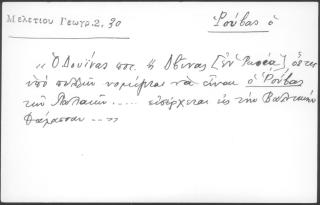 Μελετίου Γεωγρ. 2, 30
Ῥούβας ὁ
« Ὁ Δούνας ποτ. ἢ Δβίνας [ἐν Ρωσίᾳ] ὅστις
ὑπὸ πολλῶν νομίζεται νὰ εἶναι ὁ Ῥούβας
τῶν Παλαιῶν ..... εἰσέρχεται εἰς τὴν Βαλτικὴν
Θάλασσαν ... »